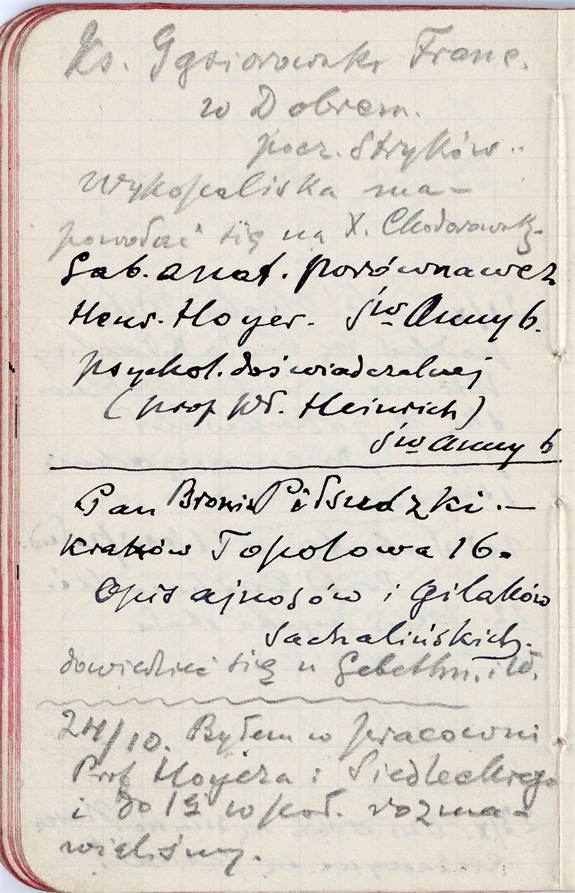 Ks. Gąsiorowski Franc.
w Dobrem.
pocz. Stryków..
Wykopaliska ma-
powołać się na X. Chodorowsk.
Gab. anat. porównawcz
Henr. Hoyer. Św Anny 6.
psychol. doświadczalnej
(prof Wł. Heinrich)
Św Anny 6
Pan Bronis Piłsudzki.—
Kraków Topolowa 16.
Opis ajnosów i Gilaków
Sachalińskich.
dowiedzieć się u Gebethn. i W.
24/10. Byłem w pracowni
Prof Hoyera i Siedleckiego
i do 1ej w poł. rozma-
wialiśmy.